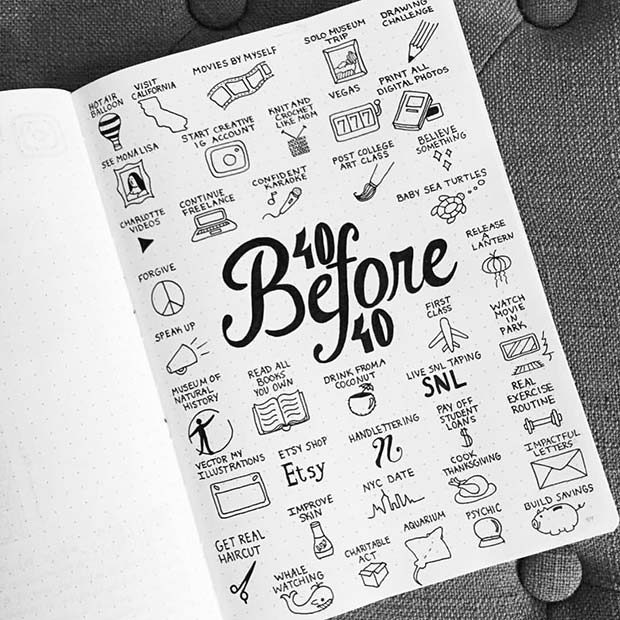 DRAWING
CHALLENGE
SOLO MUSEUM
TRIP
MOVIES BY MYSELF
VISIT
CALIFORNIA
HOT AIR
BALLOON
PRINT ALL
DIGITAL PHOTOS
VEGAS
777
KNIT AND
CROCHET
LIKE MOM
START CREATIVE
IG ACCOUNT
SEE MONA LISA
BELIEVE
SOMETHING
POST COLLEGE
ART CLASS
CONFIDENT
KARAOKE
CONTINUE
FREELANCE
CHARLOTTE
VIDEOS
BABY SEA TURTLES
RELEASE
A
LANTERN
FORGIVE
40
Before
40
SPEAK UP
FIRST
CLASS
WATCH
MOVIE
IN
PARK
MUSEUM OF
NATURAL
HISTORY
READ ALL
BOOKS
YOU OWN
DRINK FROM A
COCONUT
LIVE SNL TAPING
SNL
REAL
EXERCISE
ROUTINE
VECTOR MY
ILLUSTRATIONS
ETSY SHOP
Etsy
HANDLETTERING
n
PAY OFF
STUDENT
LOANS
$
IMPACTFUL
LETTERS
GET REAL
HAIRCUT
IMPROVE
SKIN
NYC DATE
COOK
THANKSGIVING
BUILD SAVINGS
WHALE
WATCHING
CHARITABLE
ACT
AQUARIUM
PSYCHIC